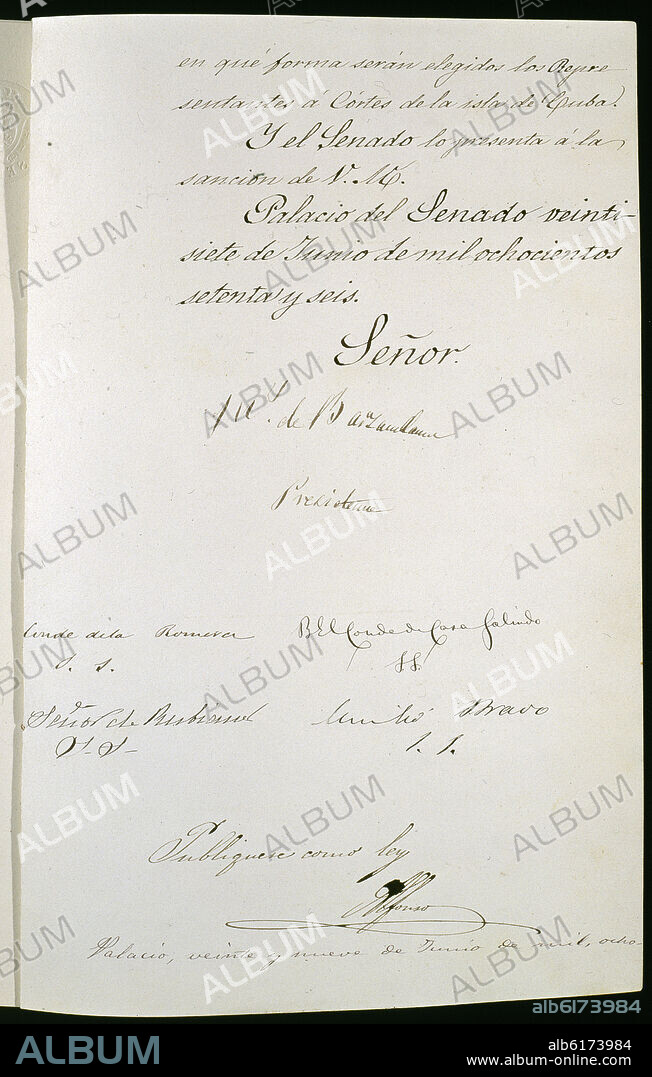 en qué forma serán elegidos los Repre
sentantes á Córtes de la isla de Cuba.
Y el Senado lo presenta á la
sancion de V. M.
Palacio del Senado veinti-
siete de Junio de mil ochocientos
setenta y seis.
Señor.
de Barzanallana
Presidente
Conde de la Romera
S. S.
El Conde de Casa Galindo
S. S.
Señor de Rubianes
S. S.
Emilio Bravo
S. S.
Publiquese como ley
Alfonso
Palacio, veinte y nueve de Junio de mil, ocho-
alb6173984
ALBUM
alb6173984
www.album-online.com